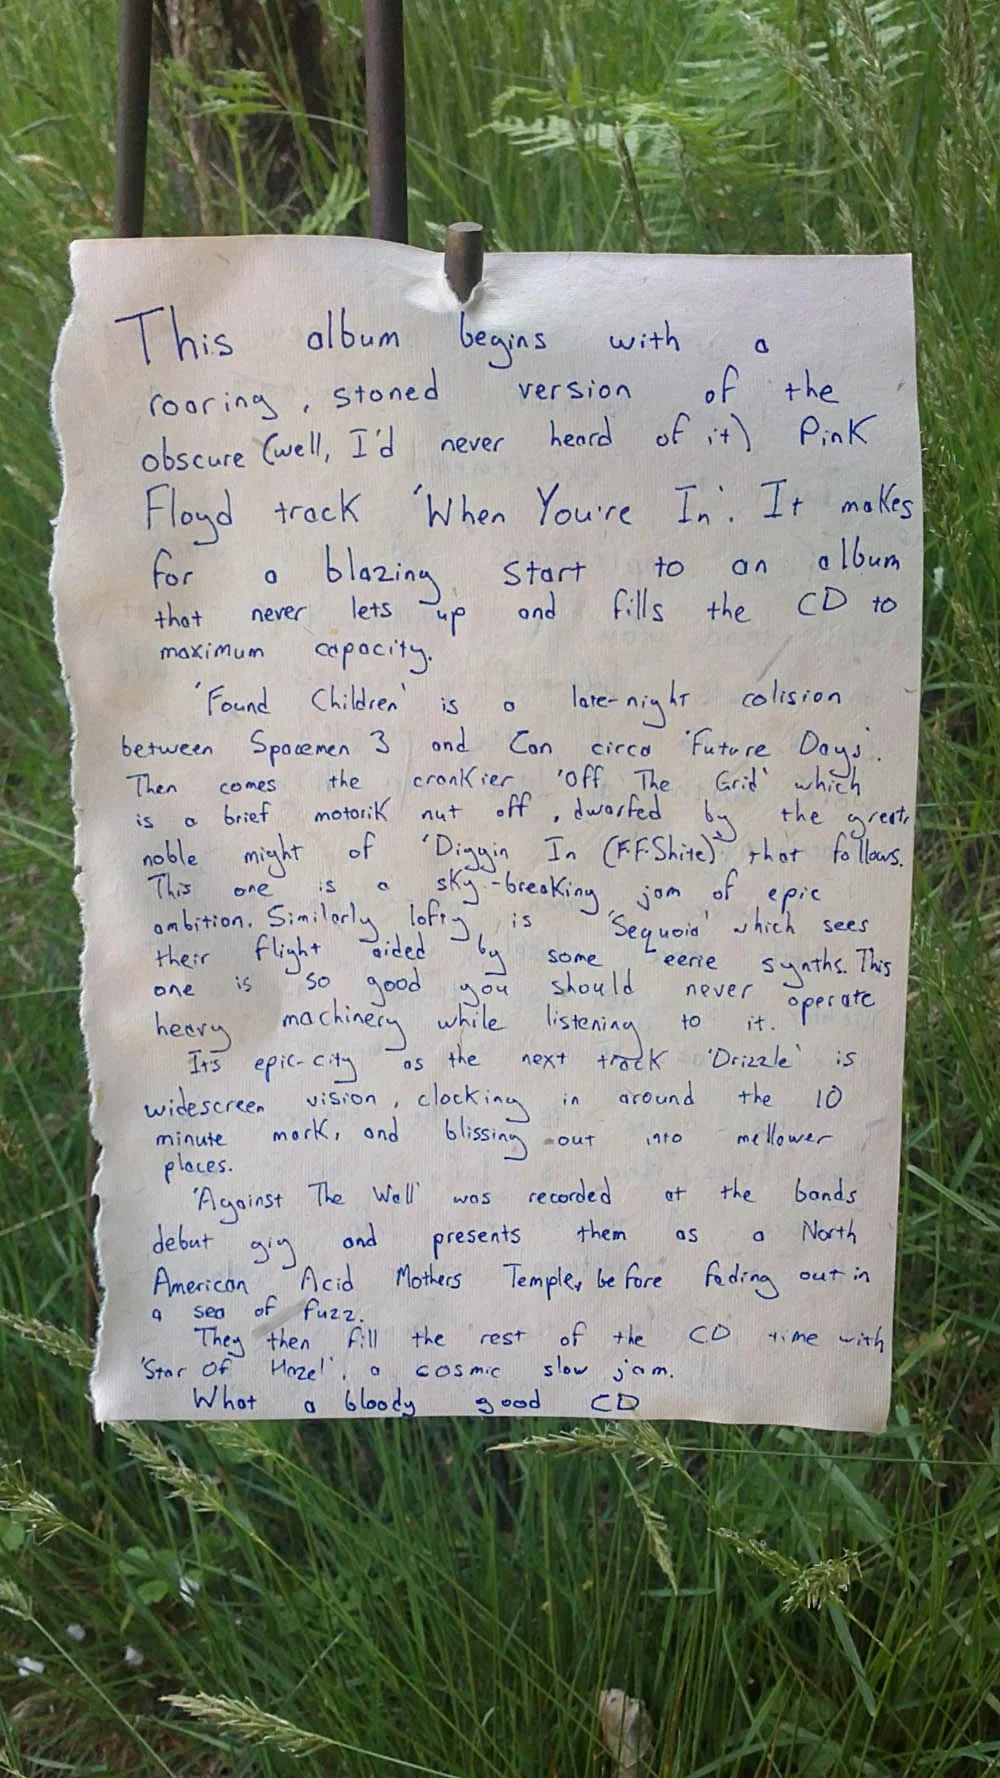 This album begins with a
roaring, stoned version of the
obscure (well, I'd never heard of it) Pink
Floyd track 'When You're In'. It makes
for a blazing start to an album
that never lets up and fills the CD to
maximum capacity.
'Found Children' is a late-night colision
between Spacemen 3 and Can circa 'Future Days'.
Then comes the crankier 'Off The Grid' which
is a brief motorik nut off, dwarfed by the great,
noble might of 'Diggin In (F.F.Shite)' that follows.
This one is a sky-breaking jam of epic
ambition. Similarly lofty is 'Sequoia' which sees
their flight aided by some eerie synths. This
one is so good you should never operate
heavy machinery while listening to it.
It's epic-city as the next track 'Drizzle' is
widescreen vision, clocking in around the 10
minute mark, and blissing out into mellower
places.
'Against The Wall' was recorded at the bands
debut gig and presents them as a North
American Acid Mothers Temple, before fading out in
a sea of fuzz.
They then fill the rest of the CD time with
'Star Of Hazel', a cosmic slow jam.
What a bloody good CD